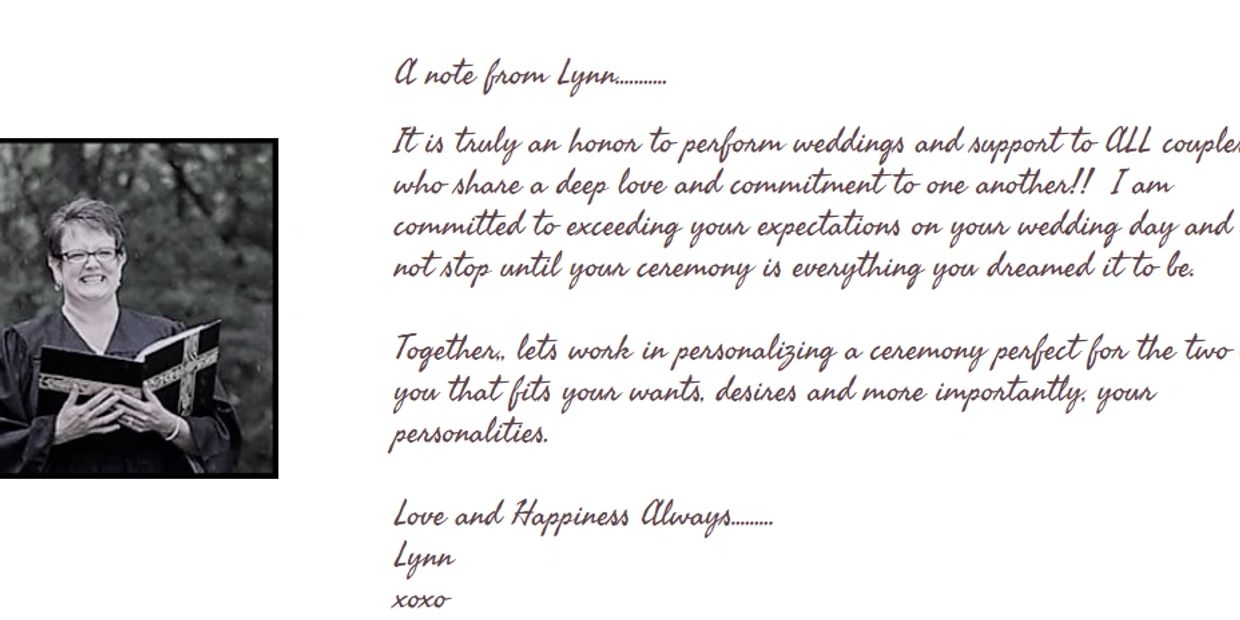 A note from Lynn...........
It is truly an honor to perform weddings and support to ALL couples
who share a deep love and commitment to one another!! I am
committed to exceeding your expectations on your wedding day and
not stop until your ceremony is everything you dreamed it to be.
Together,, lets work in personalizing a ceremony perfect for the two
you that fits your wants, desires and more importantly, your
personalities.
Love and Happiness Always.........
Lynn
xoxo